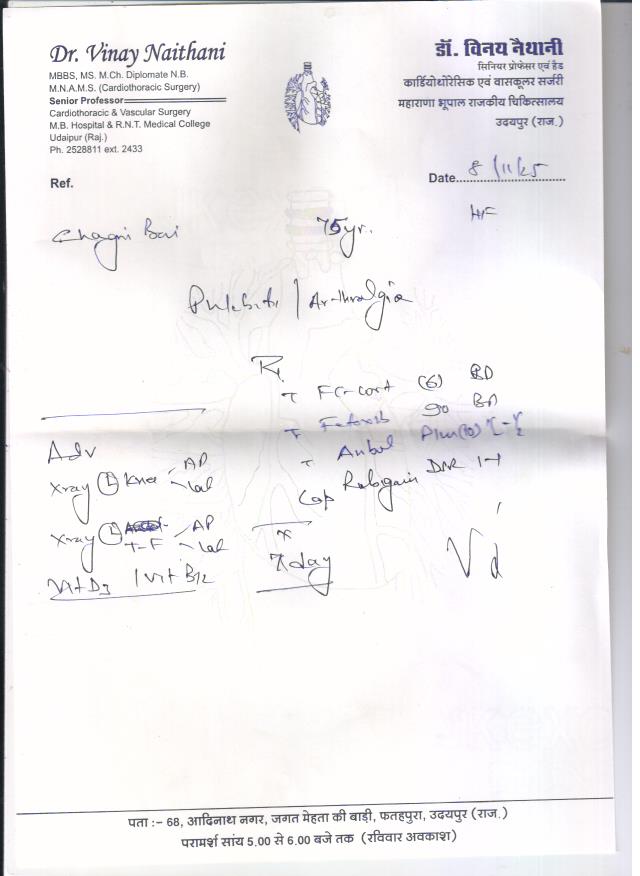 Dr. Vinay Naithani
MBBS, MS. M.Ch. Diplomate N.B.
M.N.A.M.S. (Cardiothoracic Surgery)
Senior Professor
Cardiothoracic & Vascular Surgery
M.B. Hospital & R.N.T. Medical College
Udaipur (Raj.)
Ph. 2528811 ext. 2433
डॉ. विनय नैथानी
सिनियर प्रोफेसर एवं हैड
कार्डियोथोरेसिक एवं वासकूलर सर्जरी
महाराणा भूपाल राजकीय चिकित्सालय
उदयपुर (राज.)
Ref.
Date 8/11/25
Chagni Bai 75yr.
Arthralgia
Rx
T (6) BD
T 90 BD
T Plus (10)
Cap DSR 1-1
x
7 day
Adv
Xray (L) Knee AP
Lat
Xray (L) T-F AP
Lat
Vit D3 / Vit B12
पता :- 68, आदिनाथ नगर, जगत मेहता की बाड़ी, फतहपुरा, उदयपुर (राज.)
परामर्श सांय 5.00 से 6.00 बजे तक (रविवार अवकाश)